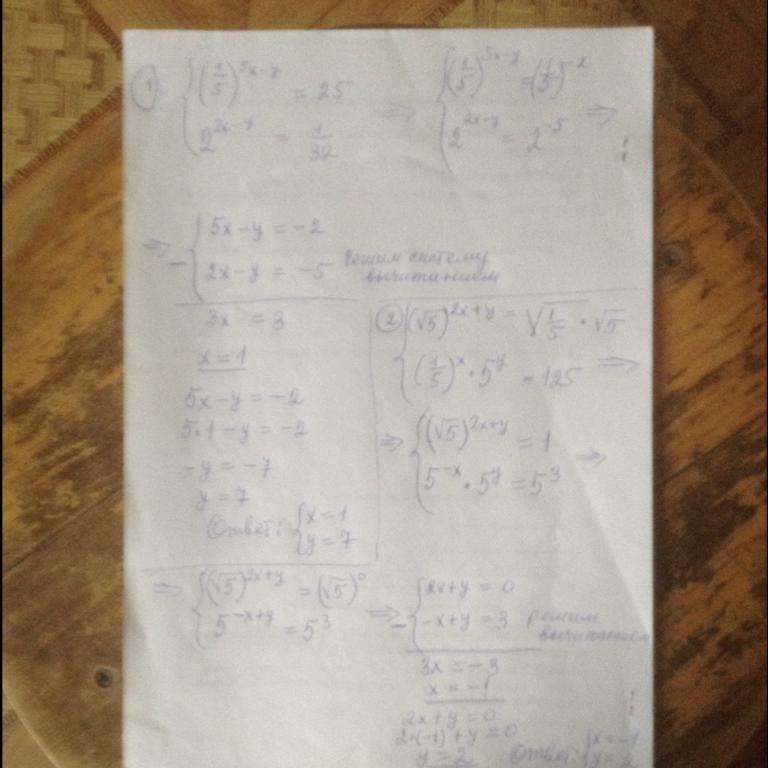 ① { (1/5)^(5x-y) = 25 => { (1/5)^(5x-y) = (1/5)^(-2) =>
{ 2^(2x-y) = 1/32 { 2^(2x-y) = 2^(-5)
=> { 5x-y = -2
- { 2x-y = -5 Решим систему вычитанием
3x = 3
x = 1
5x-y = -2
5·1-y = -2
-y = -7
y = 7
Ответ: { x = 1
{ y = 7
② { (√5)^(2x+y) = √(1/5) · √5
{ (1/5)^x · 5^y = 125 =>
=> { (√5)^(2x+y) = 1 =>
{ 5^(-x) · 5^y = 5^3
=> { (√5)^(2x+y) = (√5)^0
{ 5^(-x+y) = 5^3
=> - { 2x+y = 0
{ -x+y = 3 решим вычитанием
3x = -3
x = -1
2x+y = 0
2·(-1)+y = 0
y = 2 Ответ: { x = -1
{ y = 2